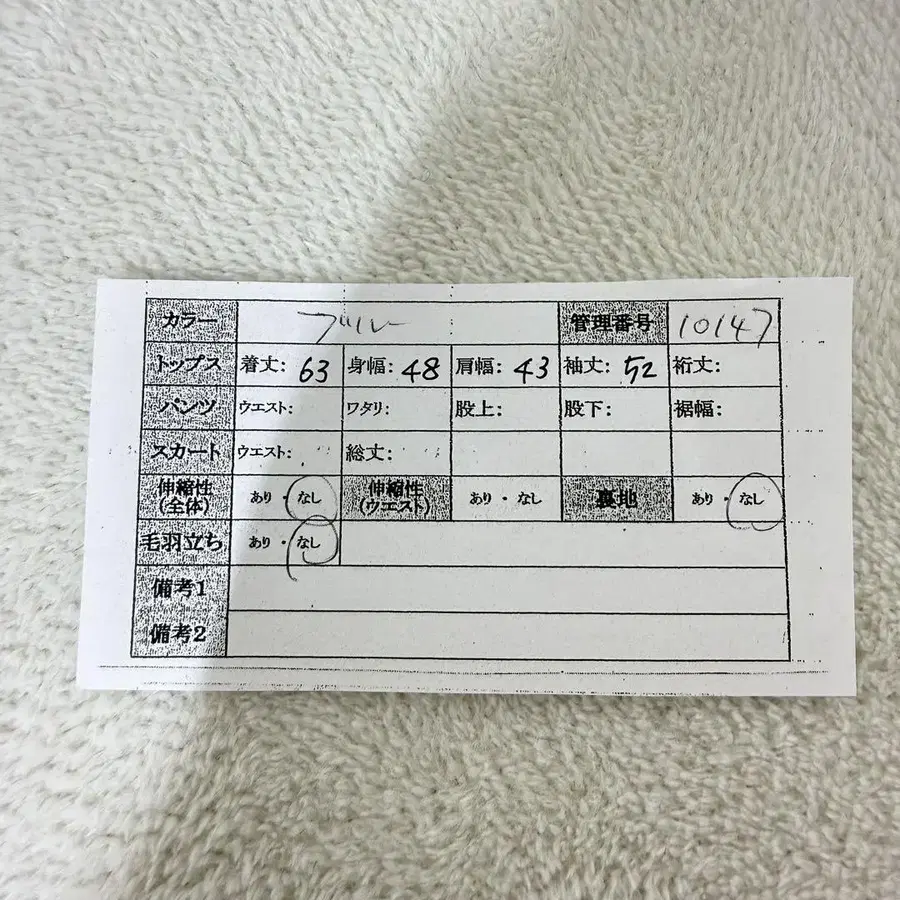 カラー ブルー 管理番号 10147
トップス 着丈: 63 身幅: 48 肩幅: 43 袖丈: 52 裄丈:
パンツ ウエスト: ワタリ: 股上: 股下: 裾幅:
スカート ウエスト: 総丈:
伸縮性(全体) あり・なし 伸縮性(ウエスト) あり・なし 裏地 あり・なし
毛羽立ち あり・なし
備考1
備考2